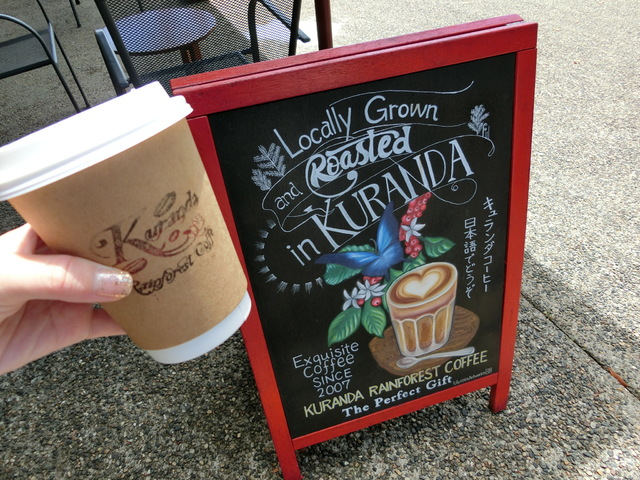 Locally Grown
and Roasted
in KURANDA
キュランダコーヒー
日本語でどうぞ
Exquisite
Coffee
SINCE
2007
KURANDA RAINFOREST COFFEE
The Perfect Gift
Kuranda
Rainforest Coffee